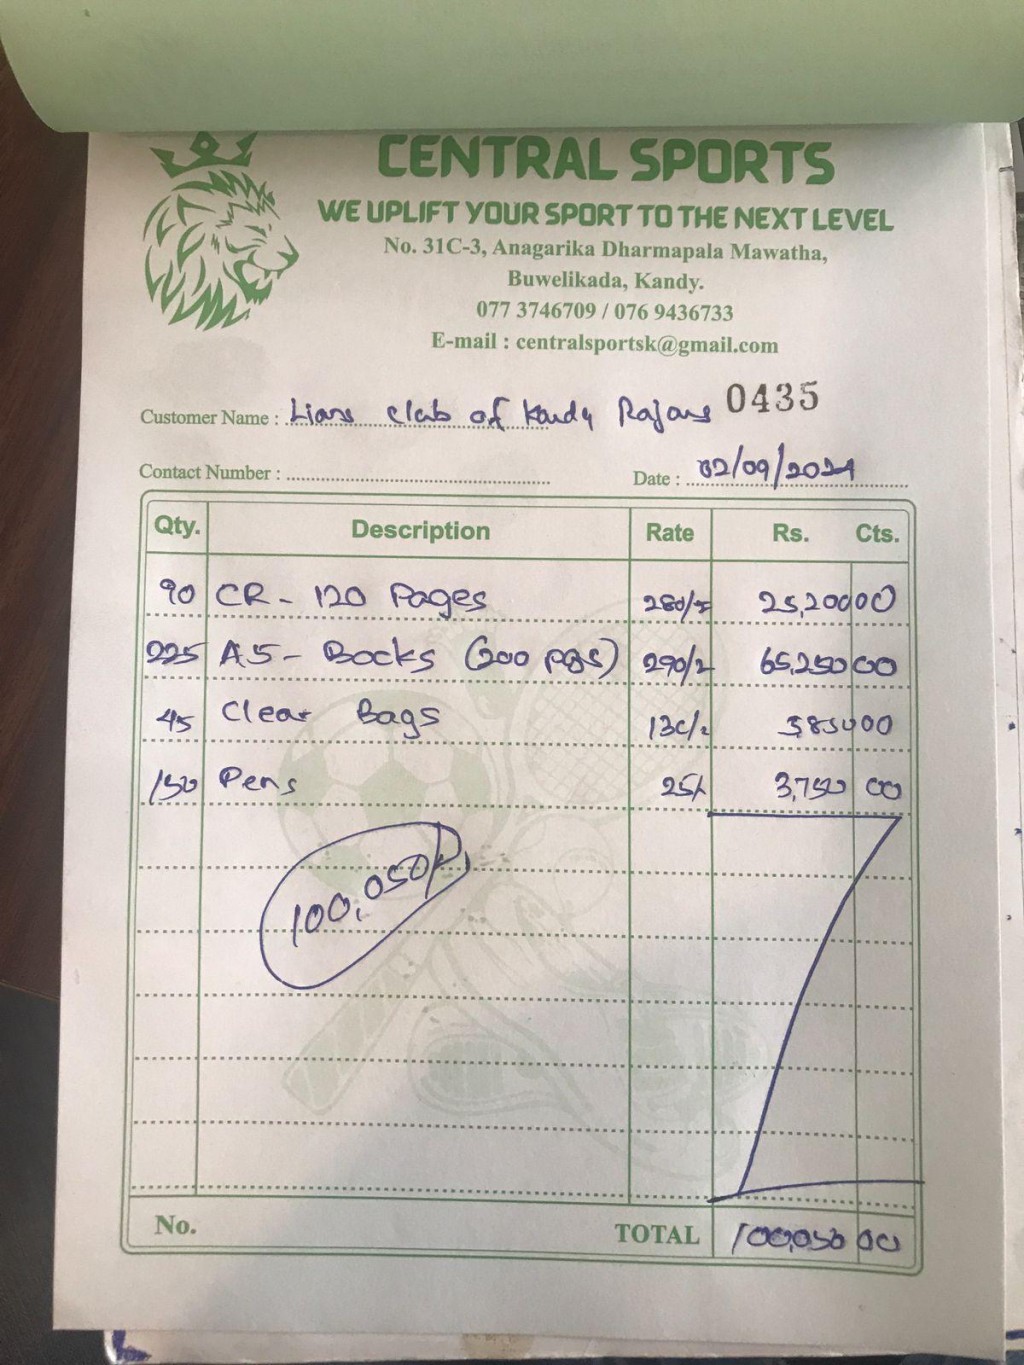 CENTRAL SPORTS
WE UPLIFT YOUR SPORT TO THE NEXT LEVEL
No. 31C-3, Anagarika Dharmapala Mawatha,
Buwelikada, Kandy.
077 3746709 / 076 9436733
E-mail : centralsportsk@gmail.com
Customer Name : Lions club of Kandy Rajans 0435
Contact Number :
Date : 02/09/2024
Qty. Description Rate Rs. Cts.
90 CR - 120 Pages 280/= 25,200 00
225 A5 - Books (200 pgs) 290/= 65,250 00
45 Clear Bags 130/= 5,850 00
150 Pens 25/ 3,750 00
100,050/
No. TOTAL 100,050 00